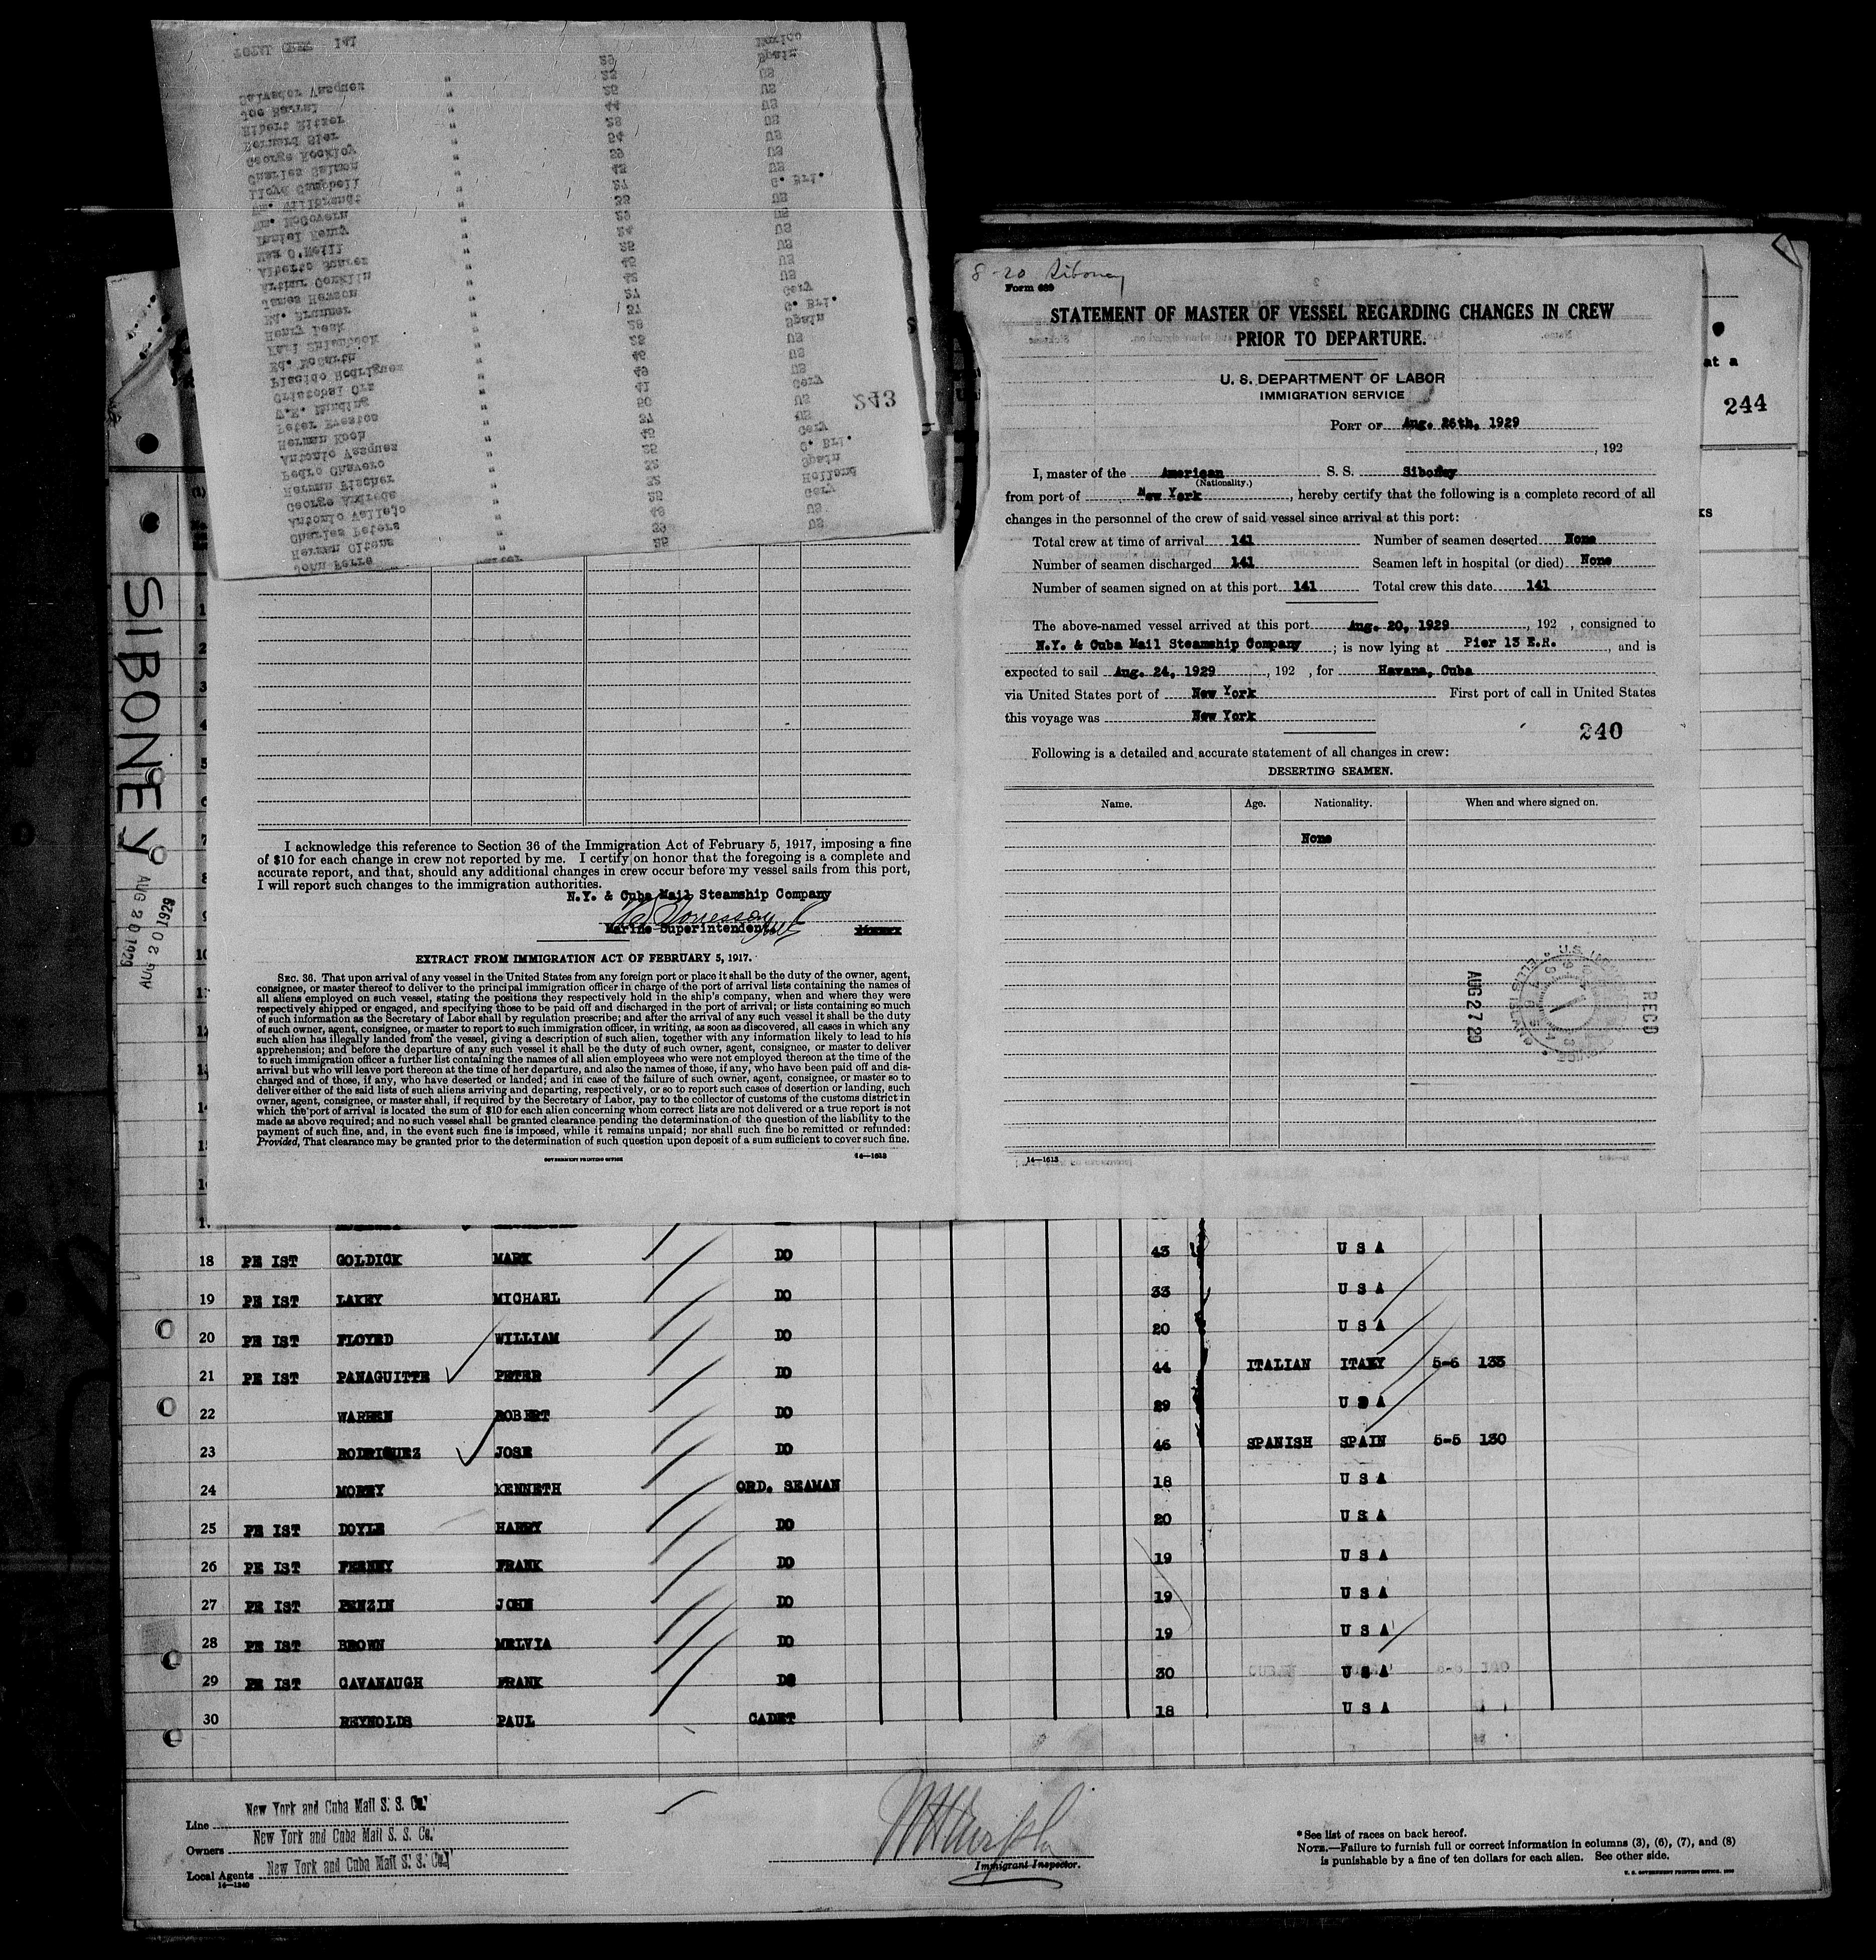 TOTAL CREW 141
Mexico
29 Spain
Salvador Vasques " 23 US
Joe Barral " 25 US
Albert Bitzer " 44 US
Bernard Sier " 28 US
George Rockley " 54 US
Charles Salmon " 29 US
Lloyd Campbell " 42 US
Wm. Willbrandt " 27 G. Bri.
Wm. McGovern " US
Daniel Henry " 29 US
Max O.Neill " 24 US
Alberto Suarez " US
Arthur Conklin " US
James Hewson " US
Ed. Brunner " 27 Gery
Henry Lesk " 37 G. Bri.
Karl " 28 Spain
Ed. McGarth " US
Placido Rodrigues " US
Cristobal Ors " Gery
W.E. Manding " 41 US
Peter Evestos " 50 US
243
Herman Koch " 37 Gery
Antonio Vasques " G. Bri.
Pedro Chavero " Spain
Herman Fischer " Holland
George Andrede " Gery
Antonio Vallejo " US
Charles Peters " US
Herman Oltens
John Ferre
SIBONEY
AUG 20 1929
AUG 20 1929
I acknowledge this reference to Section 36 of the Immigration Act of February 5, 1917, imposing a fine
of $10 for each change in crew not reported by me. I certify on honor that the foregoing is a complete and
accurate report, and that, should any additional changes in crew occur before my vessel sails from this port,
I will report such changes to the immigration authorities.
N.Y. & Cuba Mail Steamship Company
Marine Superintendent
EXTRACT FROM IMMIGRATION ACT OF FEBRUARY 5, 1917.
SEC. 36. That upon arrival of any vessel in the United States from any foreign port or place it shall be the duty of the owner, agent,
consignee, or master thereof to deliver to the principal immigration officer in charge of the port of arrival lists containing the names of
all aliens employed on such vessel, stating the positions they respectively hold in the ship's company, when and where they were
respectively shipped or engaged, and specifying those to be paid off and discharged in the port of arrival; or lists containing so much
of such information as the Secretary of Labor shall by regulation prescribe; and after the arrival of any such vessel it shall be the duty
of such owner, agent, consignee, or master to report to such immigration officer, in writing, as soon as discovered, all cases in which any
such alien has illegally landed from the vessel, giving a description of such alien, together with any information likely to lead to his
apprehension; and before the departure of any such vessel it shall be the duty of such owner, agent, consignee, or master to deliver
to such immigration officer a further list containing the names of all alien employees who were not employed thereon at the time of the
arrival but who will leave port thereon at the time of her departure, and also the names of those, if any, who have been paid off and dis-
charged and of those, if any, who have deserted or landed; and in case of the failure of such owner, agent, consignee, or master so to
deliver either of the said lists of such aliens arriving and departing, respectively, or so to report such cases of desertion or landing, such
owner, agent, consignee, or master shall, if required by the Secretary of Labor, pay to the collector of customs of the customs district in
which the port of arrival is located the sum of $10 for each alien concerning whom correct lists are not delivered or a true report is not
made as above required; and no such vessel shall be granted clearance pending the determination of the question of the liability to the
payment of such fine, and, in the event such fine is imposed, while it remains unpaid; nor shall such fine be remitted or refunded:
Provided, That clearance may be granted prior to the determination of such question upon deposit of a sum sufficient to cover such fine.
GOVERNMENT PRINTING OFFICE 14—1613
8-20 Siboney
Form 689
STATEMENT OF MASTER OF VESSEL REGARDING CHANGES IN CREW
PRIOR TO DEPARTURE.
U. S. DEPARTMENT OF LABOR
IMMIGRATION SERVICE
PORT OF Aug. 26th, 1929
, 192
I, master of the American S. S. Siboney
(Nationality.)
from port of New York , hereby certify that the following is a complete record of all
changes in the personnel of the crew of said vessel since arrival at this port:
Total crew at time of arrival 141 Number of seamen deserted None
Number of seamen discharged 141 Seamen left in hospital (or died) None
Number of seamen signed on at this port 141 Total crew this date 141
The above-named vessel arrived at this port Aug. 20, 1929 , 192 , consigned to
N.Y. & Cuba Mail Steamship Company ; is now lying at Pier 13 E.R. , and is
expected to sail Aug. 24, 1929 , 192 , for Havana, Cuba
via United States port of New York First port of call in United States
this voyage was New York
240
Following is a detailed and accurate statement of all changes in crew:
DESERTING SEAMEN.
Name. Age. Nationality. When and where signed on.
None
AUG 27 29
RECD
14—1613
at a
244
18 PE IST GOLDICK MARK DO 43 U S A
19 PE IST LAKEY MICHAEL DO 33 U S A
20 PE IST FLOYED WILLIAM DO 20 U S A
21 PE IST PANAGUITTE PETER DO 44 ITALIAN ITALY 5-6 133
22 WARREN ROBERT DO 29 U S A
23 RODRIGUEZ JOSE DO 46 SPANISH SPAIN 5-5 130
24 MOREY KENNETH ORD. SEAMAN 18 U S A
25 PE IST DOYLE HARRY DO 20 U S A
26 PE IST FEENEY FRANK DO 19 U S A
27 PE IST BENZIN JOHN DO 19 U S A
28 PE IST BROWN MELVIA DO 19 U S A
29 PE IST CAVANAUGH FRANK DO 30 U S A
30 REYNOLDS PAUL CADET 18 U S A
Line New York and Cuba Mail S. S. Co.
Owners New York and Cuba Mail S. S. Co.
Local Agents New York and Cuba Mail S. S. Co.
14—1240
Immigrant Inspector.
* See list of races on back hereof.
NOTE.—Failure to furnish full or correct information in columns (3), (6), (7), and (8)
is punishable by a fine of ten dollars for each alien. See other side.
U. S. GOVERNMENT PRINTING OFFICE